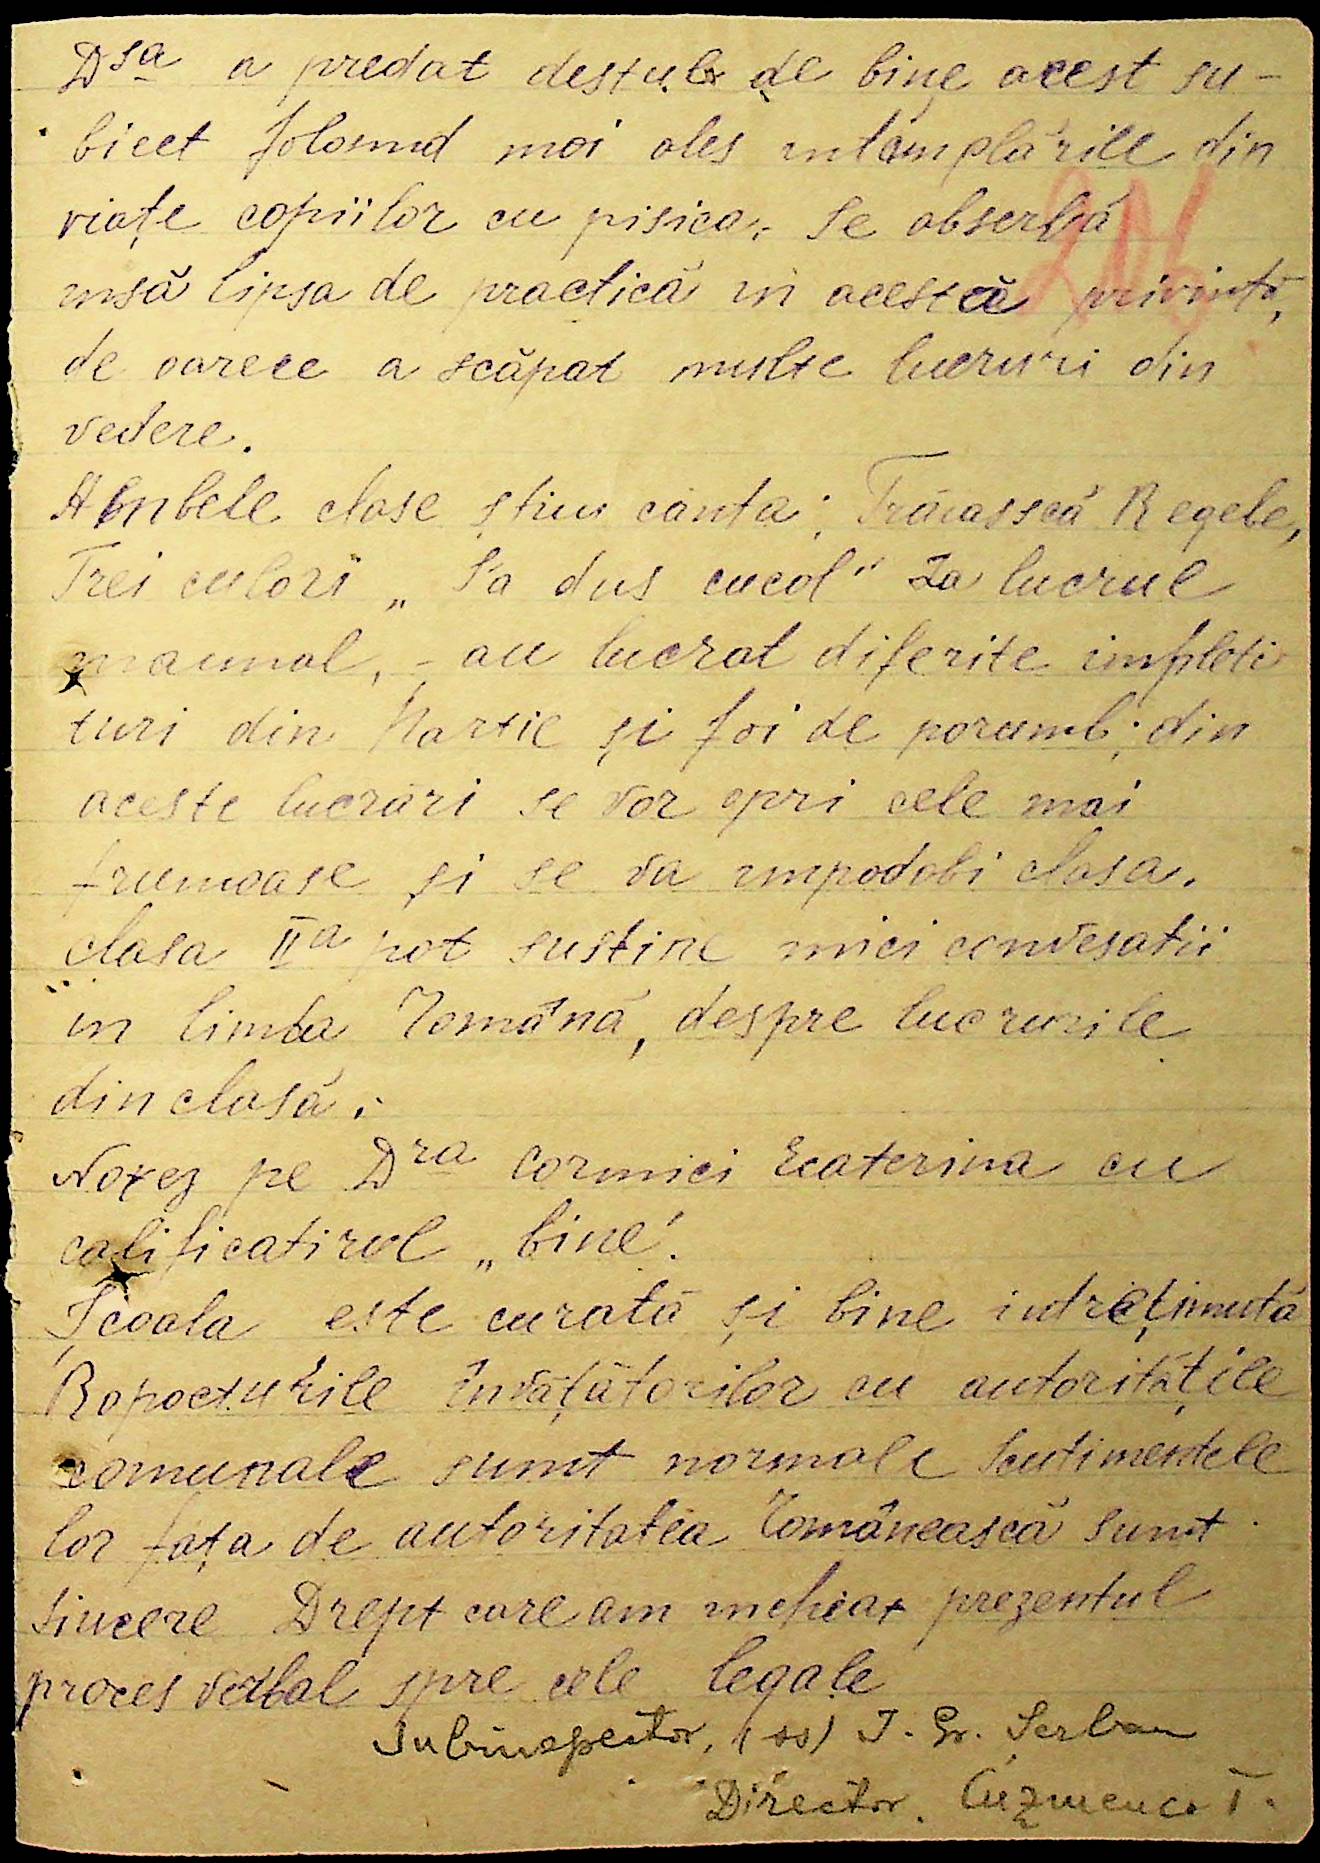 Dsa a predat destul de bine acest su-
biect folosind mai ales intâmplările din
viațe copiilor cu pisica. Se observă
insă lipsa de practică in acestă privință,
de oarece a scăpat multe lucruri din
vedere.
Ambele clase știu canta: Trăiască Regele,
Trei culori „S'a dus cucul" La lucrul
manual, - au lucrat diferite impleti
turi din hartie și foi de porumb; din
aceste lucrări se vor opri cele mai
frumoase și se va impodobi clasa.
clasa IIa pot sustine mici convesatii
in limba Română, despre lucrurile
din clasă.
Notez pe Dra Cormici Ecaterina cu
calificativul „bine".
Școala este curată și bine intreținută
Raporturile Învățătorilor cu autoritățile
comunale sunt normale Sentimentele
lor fața de autoritatea Românească sunt
sincere Drept care am incheiat prezentul
proces verbal spre cele legale
Subinspector, (ss) I. Gr. Șerban
Director. Cuzmenco T.